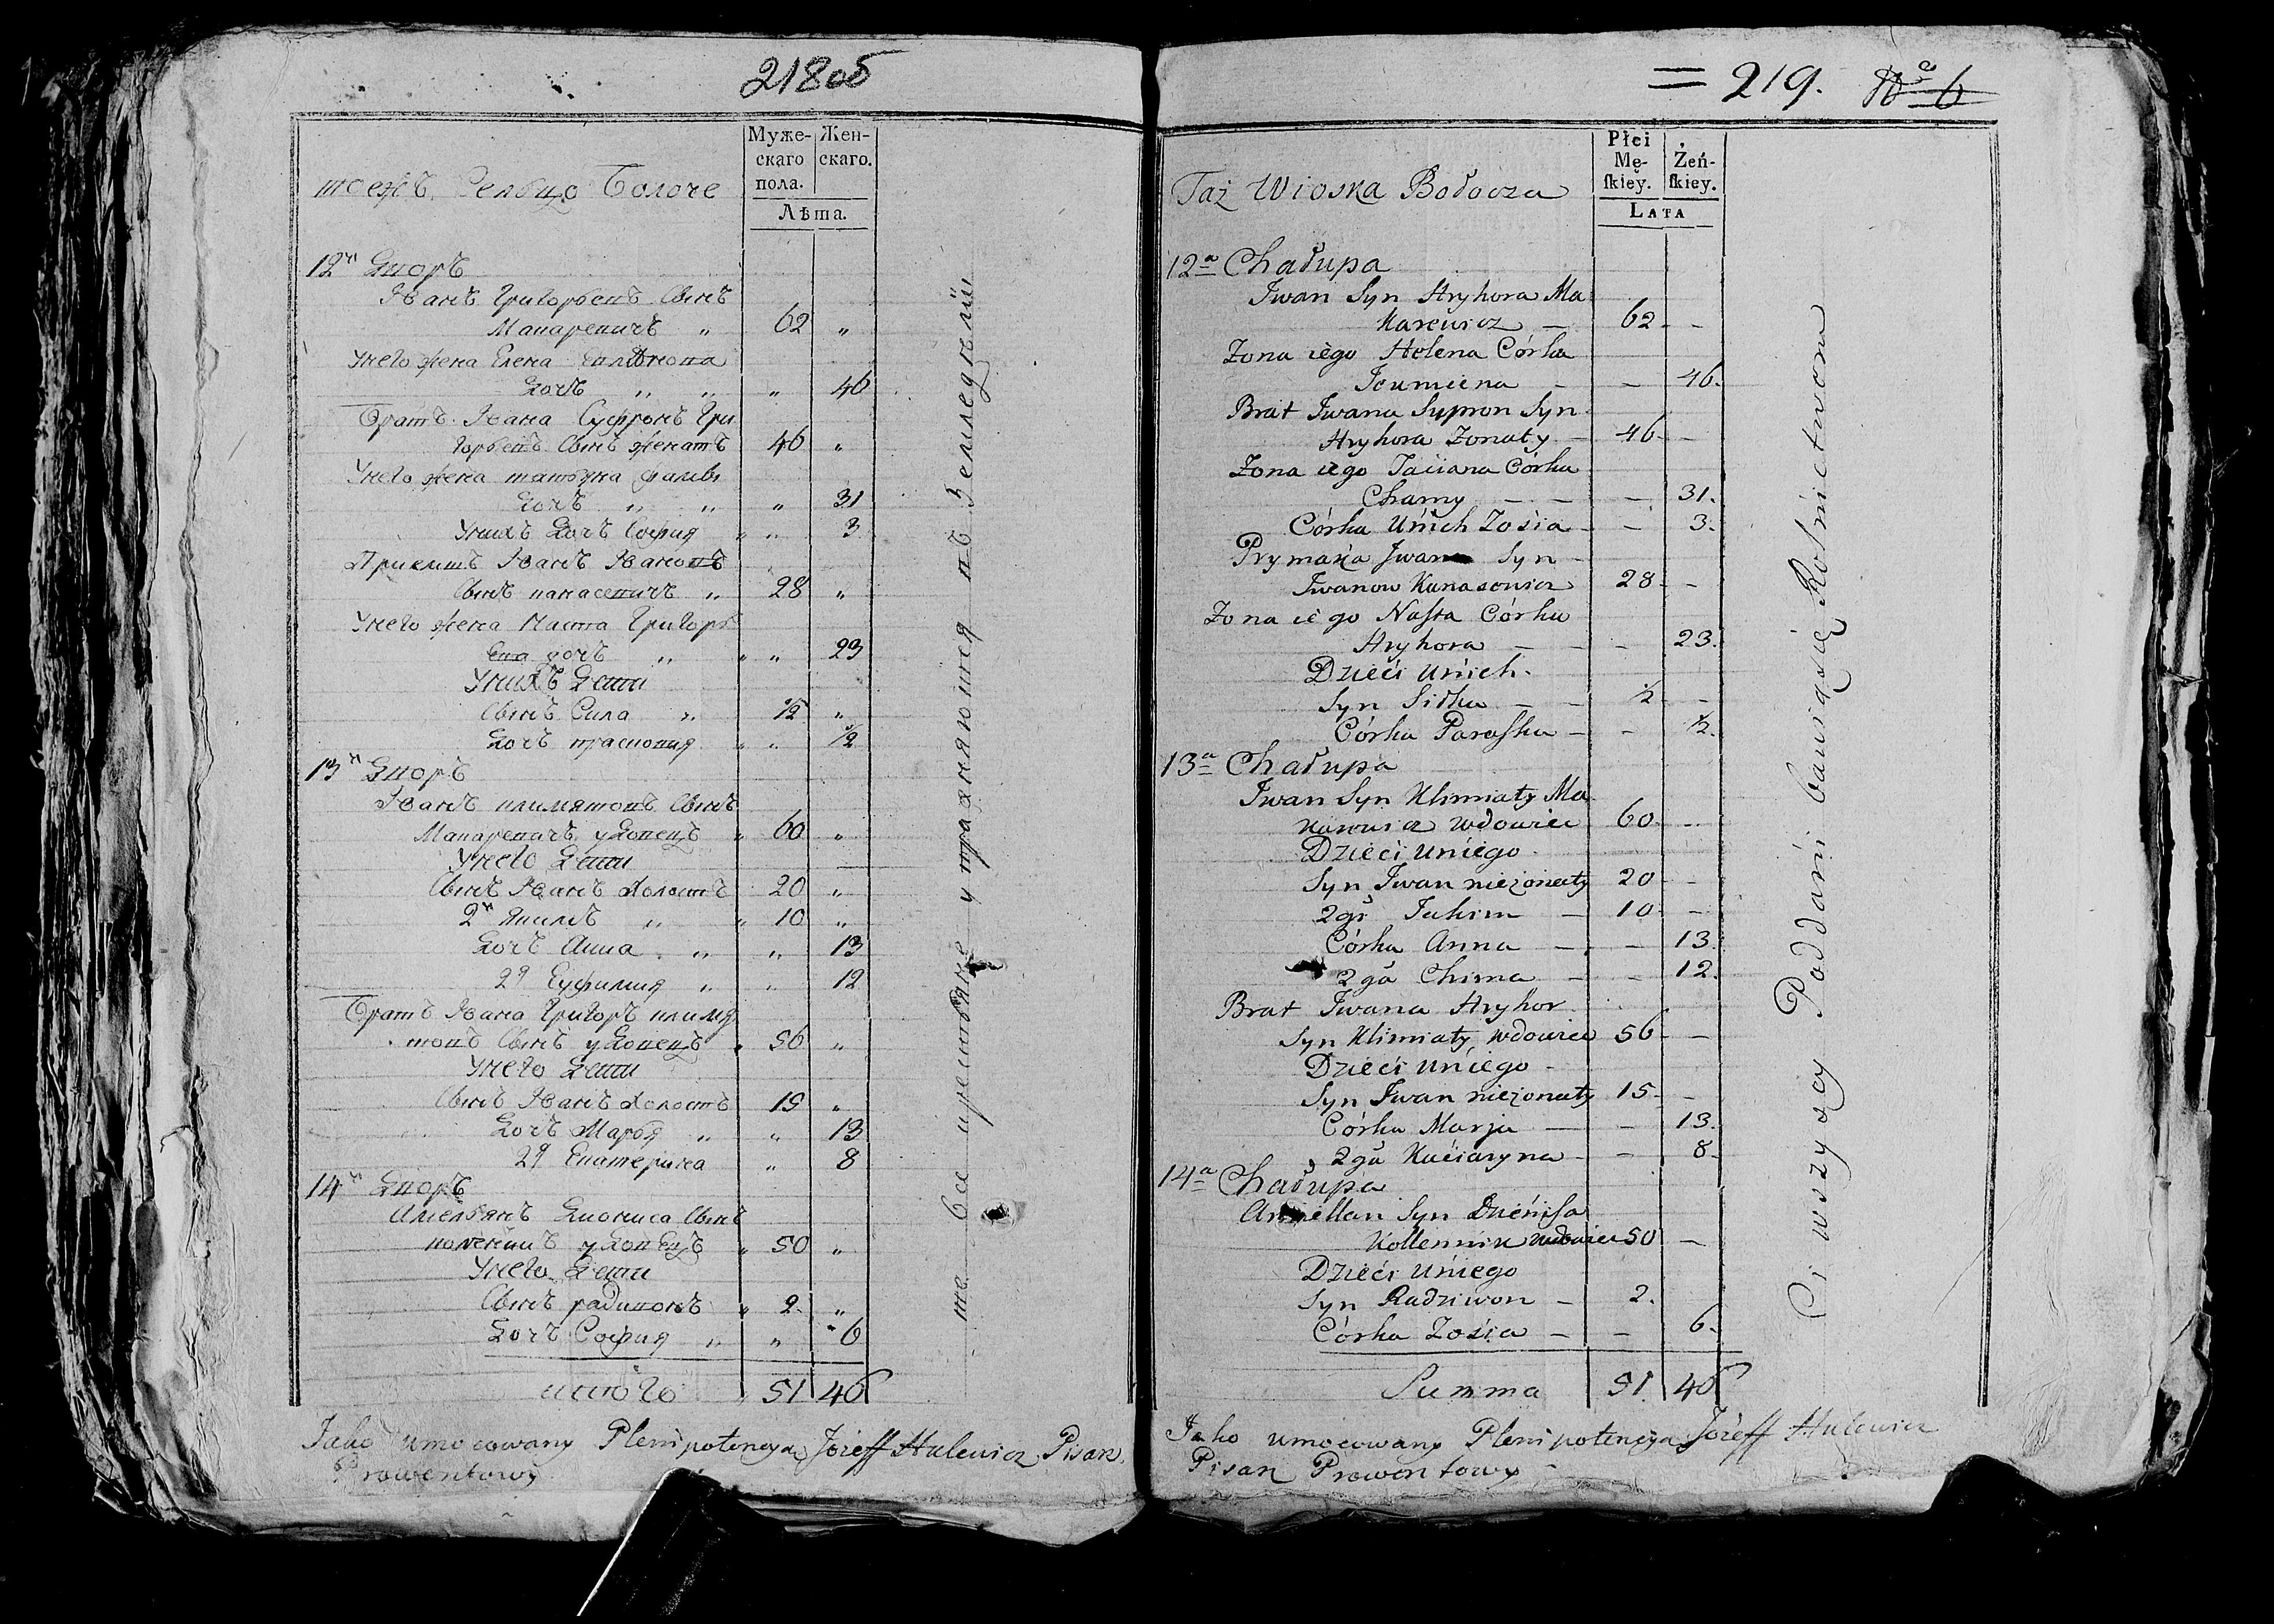 218об
Муже-
скаго
пола.
Жен-
скаго.
Лѣта.
тоежъ Сельцо Болоче
12й Дворъ
Иванъ Григорьевъ Сынъ
Макаревичъ „ 62 „
Унего жена Елена
Дочь „ „ „ 46
Братъ Ивана Суфронъ Гри
горьевъ Сынъ женатъ 46 „
Унего жена татьяна
Дочь „ „ „ 31
Унихъ Дочь София „ „ 3
Приемышъ Иванъ Ивановъ
Сынъ „ 28 „
Унего жена Наста Григорь
ева дочь „ „ „ 23
Унихъ Дети
Сынъ Сила „ 1/2 „
Дочь прасковия „ „ 1/2
13й Дворъ
Иванъ климятовъ Сынъ
Макаревичъ удовецъ „ 60 „
Унего Дети
Сынъ Иванъ Холостъ 20 „
2й Якимъ „ „ 10 „
Дочь Анна „ „ 13
2я Еуфимия „ „ 12
Братъ Ивана Григоръ климя
товъ Сынъ удовецъ „ 56 „
Унего Дети
Сынъ Иванъ Холостъ 15 „
Дочь Марья „ „ 13
2я Екатерина „ 8
14й Дворъ
Амельянъ Диониса Сынъ
удовецъ „ 50 „
Унего Дети
Сынъ радивонъ „ 2 „
Дочь София „ „ 6
итого „ 51 46
те Все крестьяне упражняются въ Земледѣлии
Jako umocowany Plenipotencyą Józeff Hulewicz Pisarz
Prowentowy
= 219. № 6
Płci
Mę-
ſkiey.
Żeń-
ſkiey.
LATA
Taż Wioska Bołocza
12a Chałupa
Iwan Syn Hryhora Ma
karewicz — 62 - -
Żona iego Helena Córka
Jeumiena — — 46.
Brat Iwana Supron Syn
Hryhora Żonaty — 46 - -
Żona iego Taciana Córka
Chamy — — — 31.
Córka Unich Zosia — - 3.
Prymaka Iwana Syn
Iwanow Kanasewicz 28 - -
Żona iego Nasta Córka
Hryhora — — - 23.
Dzieći Unich.
Syn Siłka — — 1/2 - -
Córka Paraſka — - 1/2.
13a Chałupa
Iwan Syn Klimiaty Ma
karewicz Wdowiec 60 - -
Dzieći Uniego
Syn Iwan nieżonaty 20 - -
2gi Jakim — 10 - -
Córka Anna — — 13.
2ga Chima — - 12.
Brat Iwana Hryhor
Syn Klimiaty Wdowiec 56 - -
Dzieći Uniego
Syn Iwan nieżonaty 15 - -
Córka Marja — — 13.
2ga Kaciaryna — - 8.
14a Chałupa
Amiellan Syn Dzieniſa
Kollennik Wdowiec 50 —
Dzieći Uniego
Syn Radziwon — 2.
Córka Zosia — — 6.
Summa 51 46
Ci wszyscy Poddani bawią się Rolnictwom
Jako umocowany Plenipotencyą Józeff Hulewicz
Pisarz Prowentowy